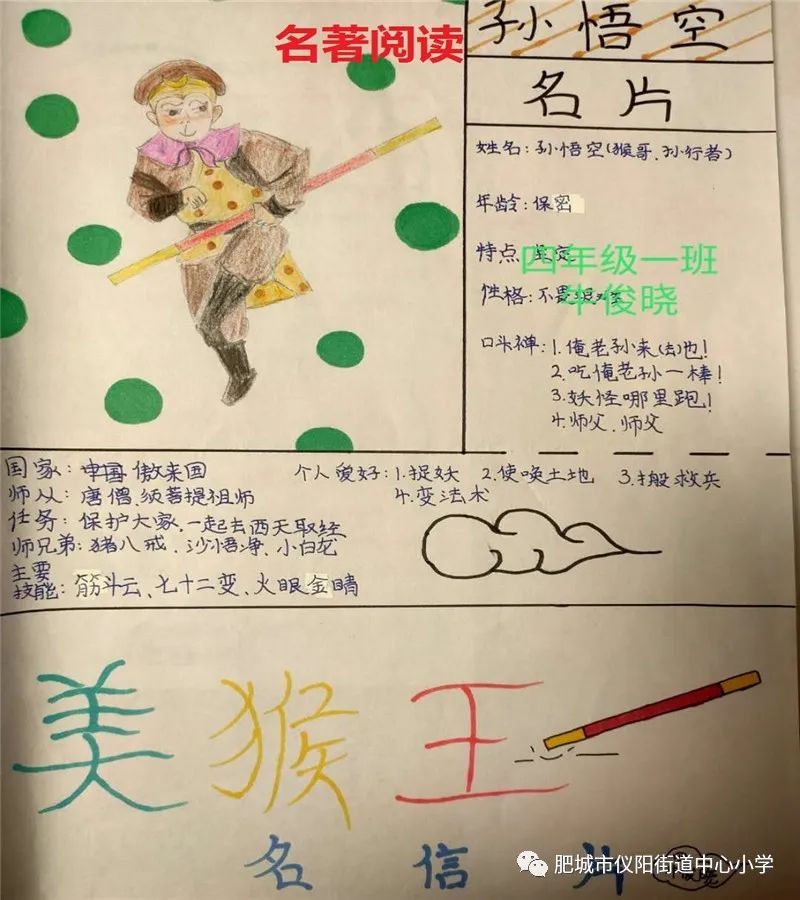 名著阅读
孙悟空
名片
姓名:孙悟空(猴哥、孙行者)
年龄:保密
特点
四年级一班
牛俊晓
性格:不畏艰难
口头禅:1.俺老孙来(去)也!
2.吃俺老孙一棒!
3.妖怪哪里跑!
4.师父、师父
国家:中国 傲来国
师从:唐僧、须菩提祖师
任务:保护大家,一起去西天取经
师兄弟:猪八戒、沙悟净、小白龙
主要
技能:筋斗云、七十二变、火眼金睛
个人爱好:1.捉妖 2.使唤土地 3.搬救兵
4.变法术
美猴王
名信片
肥城市仪阳街道中心小学